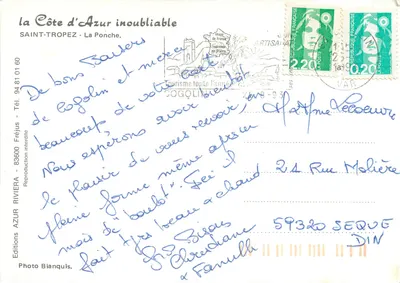 la Côte d'Azur inoubliable
SAINT-TROPEZ - La Ponche,
De bons Baisers
de Cogolin et merci
beaucoup de votre carte.
Nous espérons avoir bientôt
le plaisir de vous revoir, en
pleine forme même après un
mois de "boulot". Ici il
fait très beau & chaud
Gros Bisous
Christiane
& Famille
2,20
0,20
COGOLIN
M et Mme
21 Rue Molière
59320 SEQUE
DIN
Editions AZUR RIVIERA - 83600 Fréjus - Tél. 94 81 01 60
Reproduction interdite
Photo Bianquis.